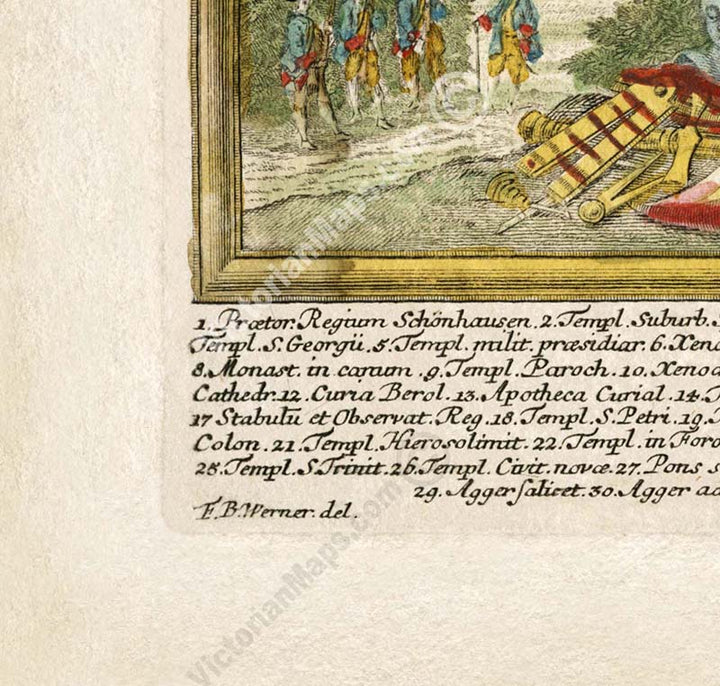 1. Prætor. Regium Schönhausen. 2. Templ. Suburb.
Templ. S. Georgii. 5. Templ. milit. præsidiar. 6. Xeno
8. Monast. in carum. 9. Templ. Paroch. 10. Xenod
Cathedr. 12. Curia Berol. 13. Apotheca Curial. 14.
17 Stabulū et Observat. Reg. 18. Templ. S. Petri. 19.
Colon. 21. Templ. Hierosolimit. 22. Templ. in Foro
25. Templ. S. Trinit. 26. Templ. Civit. novæ. 27. Pons s
29. Agger salicet. 30. Agger ad
F. B. Werner. del.
VictorianMaps.com ©
VictorianMaps.com